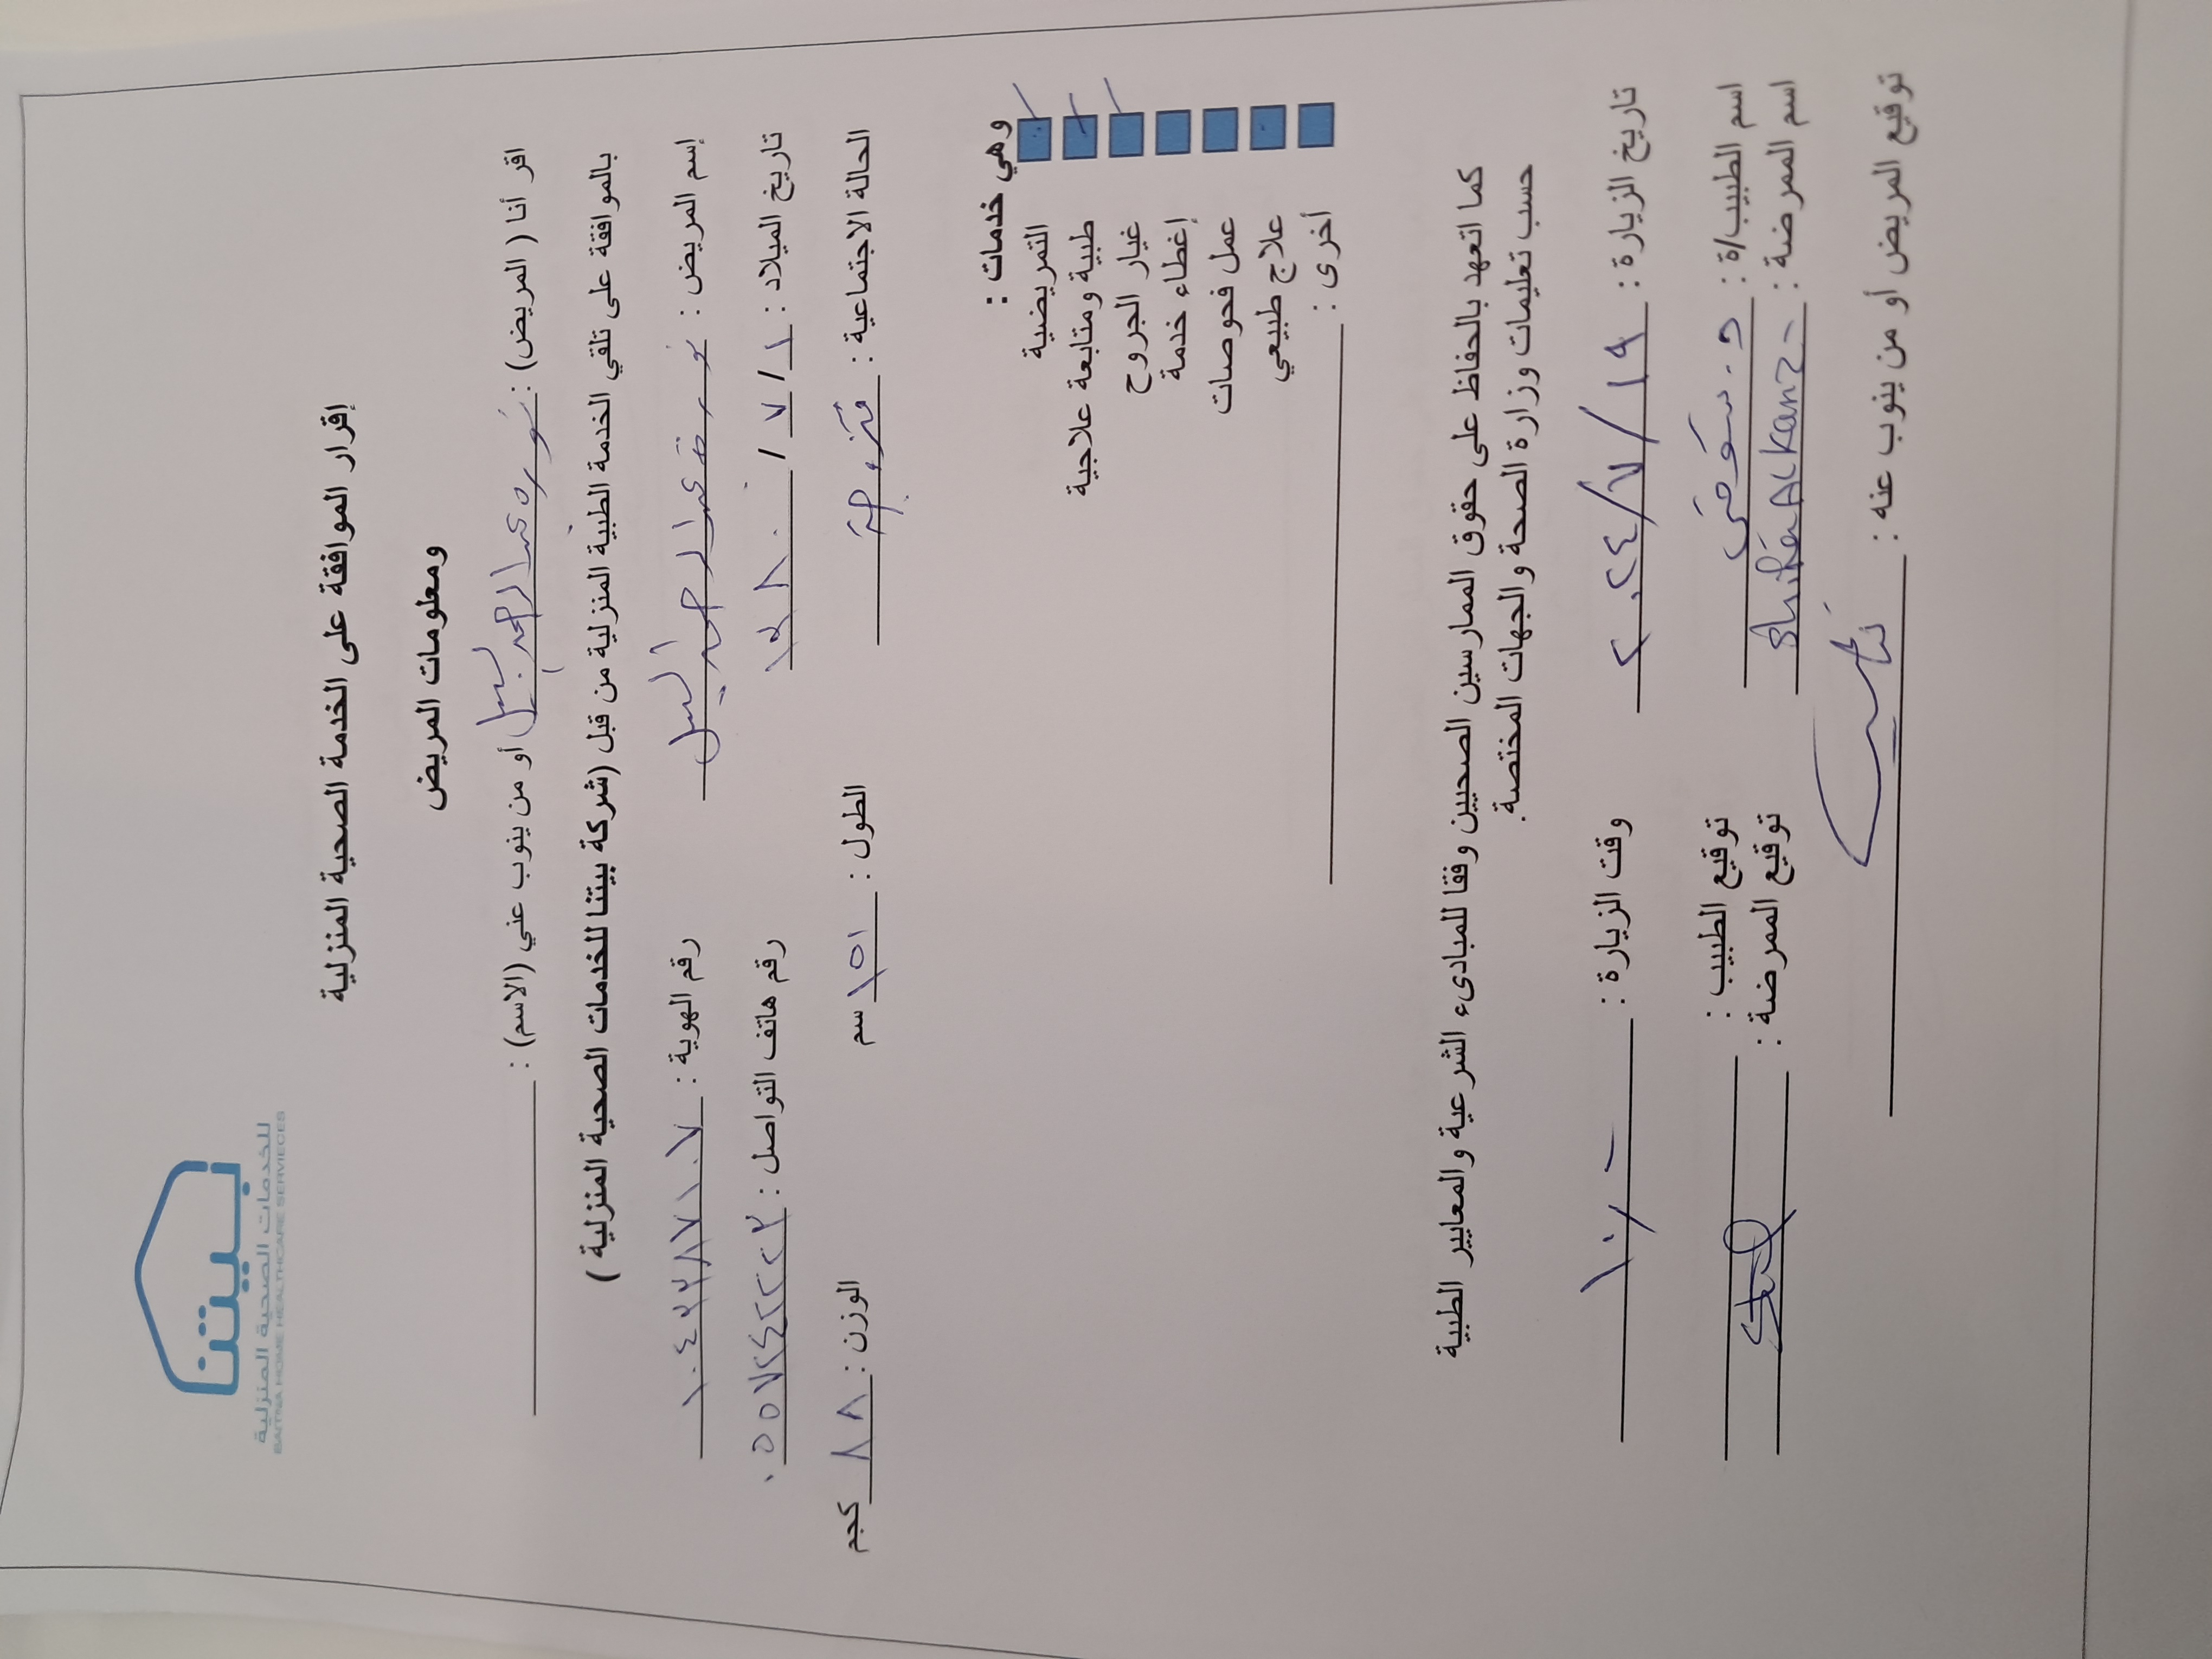 بيتنا
للخدمات الصحية المنزلية
BAITNA HOME HEALTHCARE SERVIECES
إقرار الموافقة على الخدمة الصحية المنزلية
ومعلومات المريض
اقر أنا ( المريض) : نوره عبدالرحمن أو من ينوب عني (الاسم) :
بالموافقة على تلقي الخدمة الطبية المنزلية من قبل (شركة بيتنا للخدمات الصحية المنزلية )
إسم المريض : نورة عبدالرحمن رقم الهوية : ١٠٤٣٣٨٧١٠٧
تاريخ الميلاد : ١ / ٧ / ١٣٨٠ رقم هاتف التواصل : ٠٥٥٧٢٤٢٢٢٣
الحالة الاجتماعية : متزوجة الطول : ١٥١ سم الوزن : ٨٨ كجم
وهي خدمات :
التمريضية
طبية ومتابعة علاجية
غيار الجروح
إغطاء خدمة
عمل فحوصات
علاج طبيعي
أخرى :
كما اتعهد بالحفاظ على حقوق الممارسين الصحيين وفقا للمبادىء الشرعية والمعايير الطبية
حسب تعليمات وزارة الصحة والجهات المختصة.
تاريخ الزيارة : ١٩ / ٧ / ٢٠٢٤ وقت الزيارة :
اسم الطبيب/ة : د. توقيع الطبيب :
اسم الممرضة : توقيع الممرضة :
توقيع المريض أو من ينوب عنه :